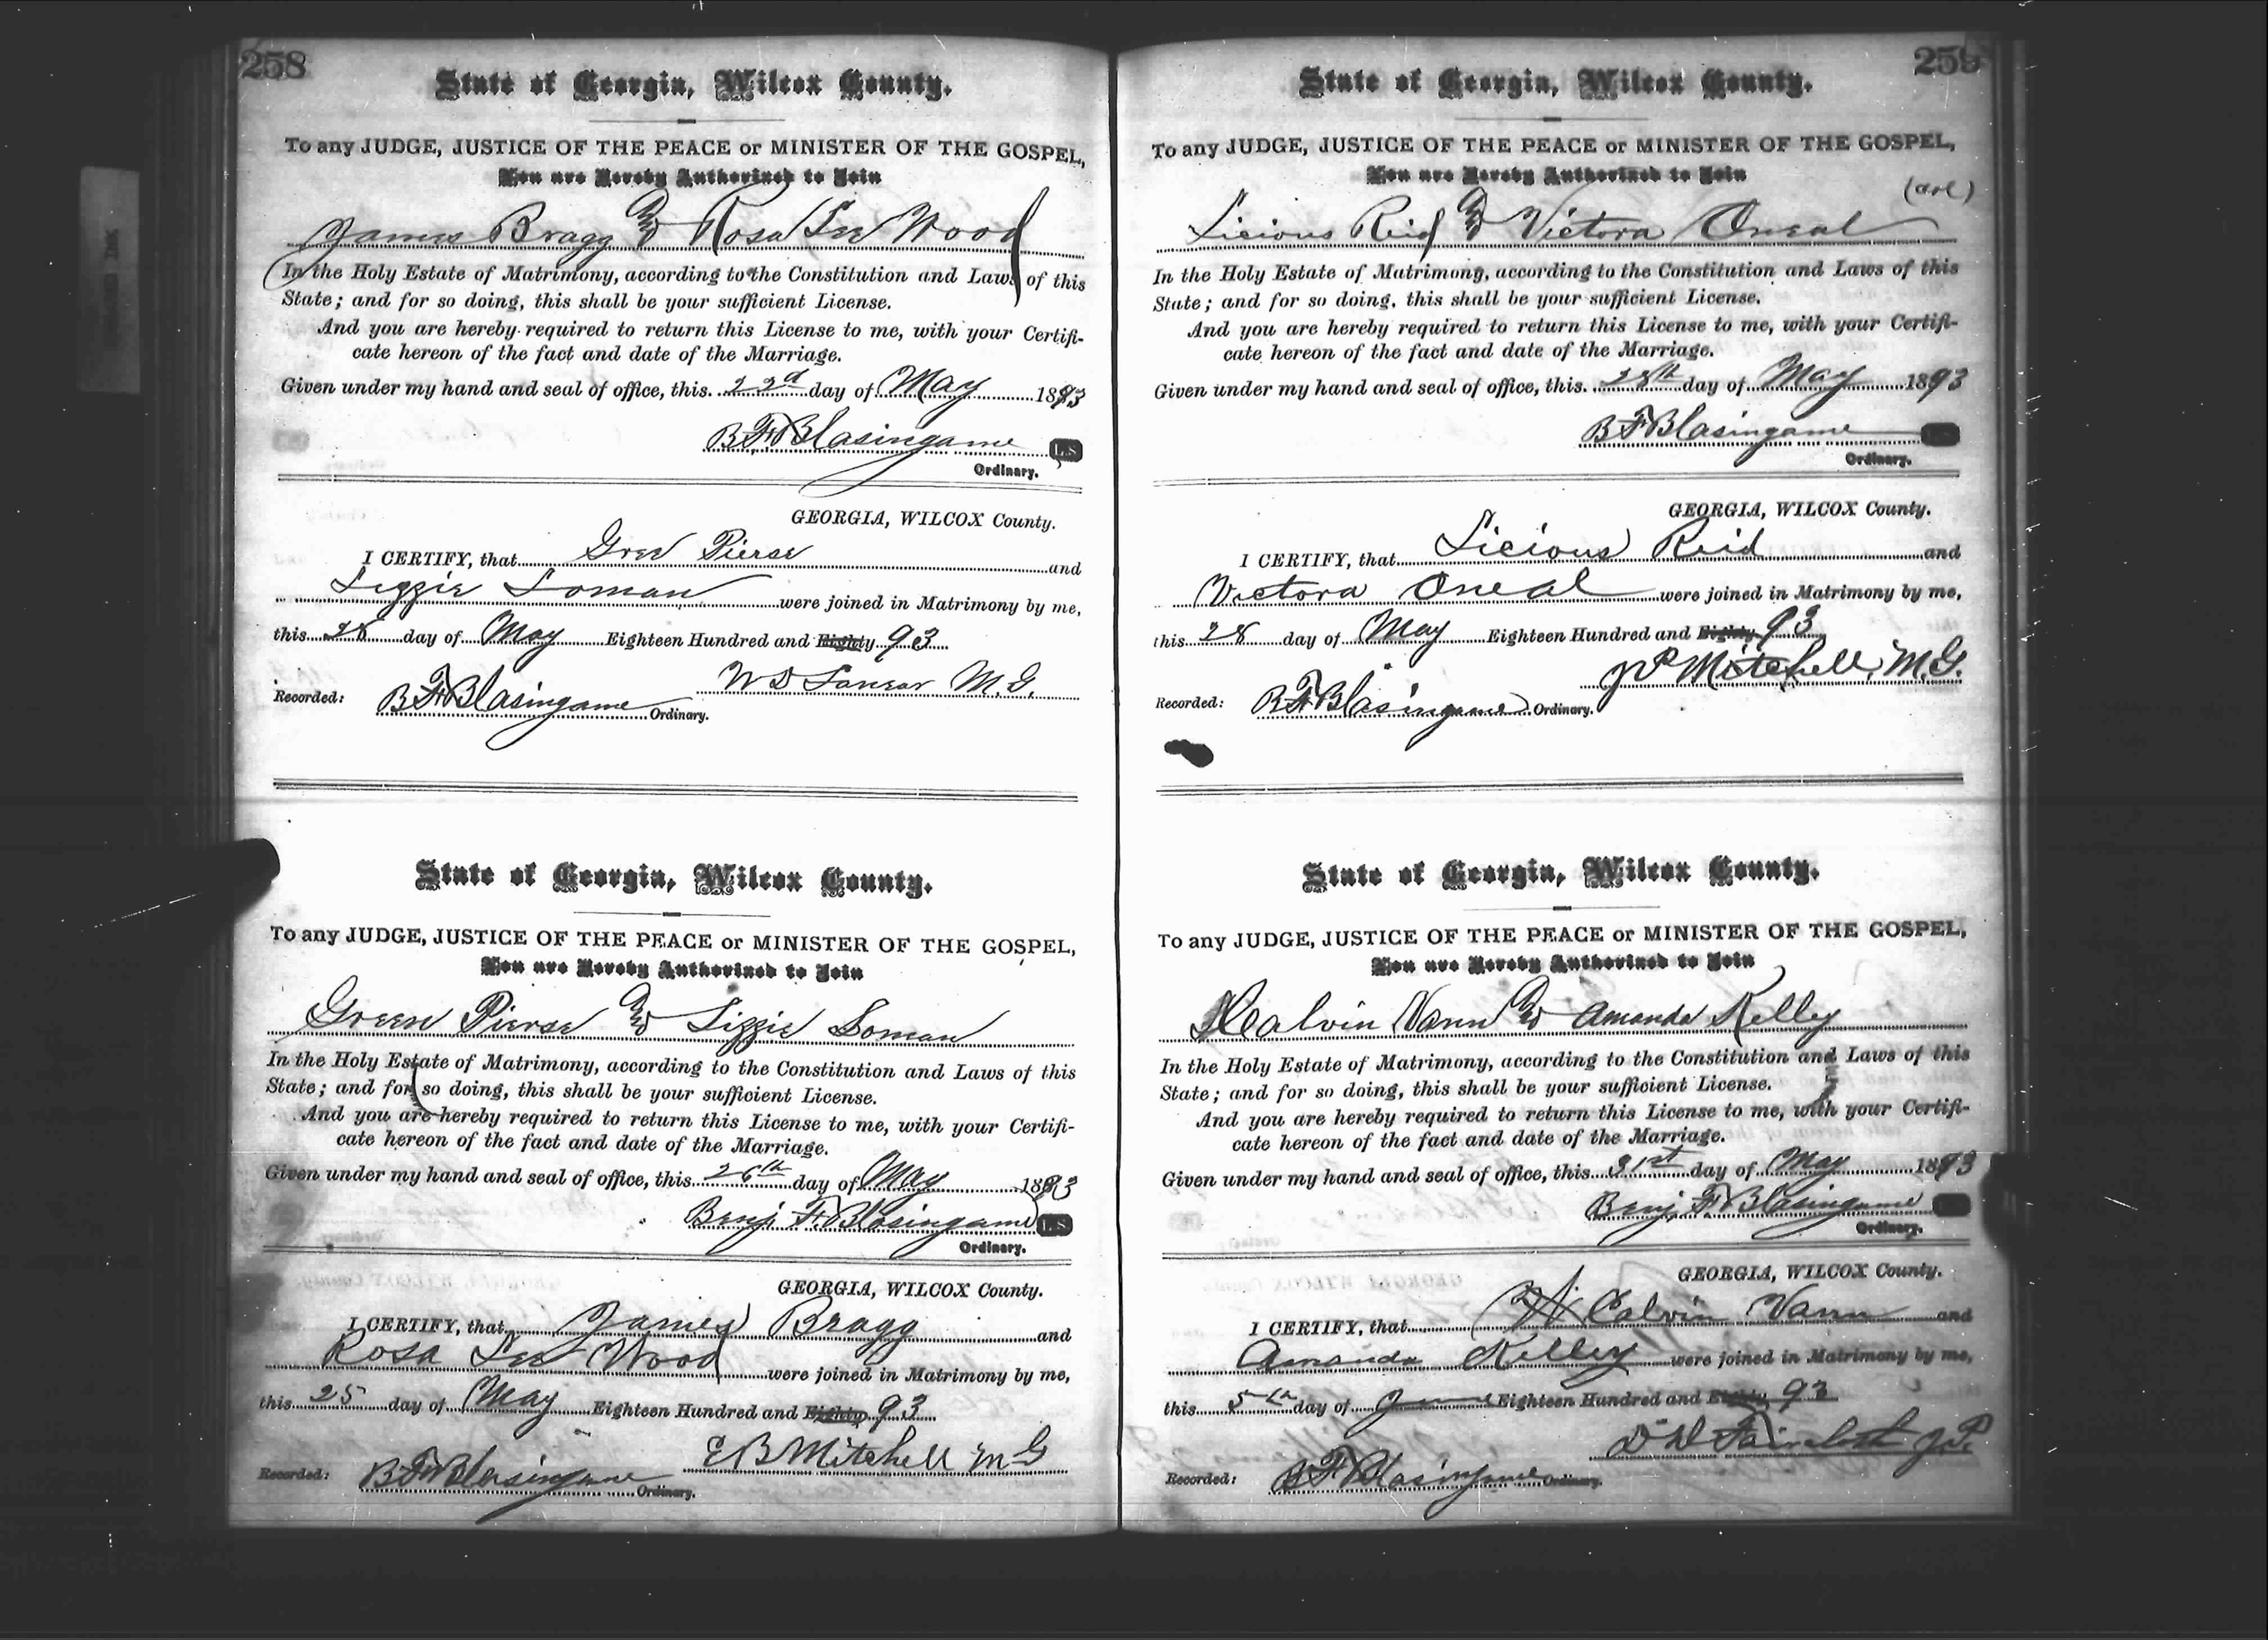 258
State of Georgia, Wilcox County.
To any JUDGE, JUSTICE OF THE PEACE or MINISTER OF THE GOSPEL,
You are Hereby Authorized to Join
James Bragg & Rosa Lee Wood
In the Holy Estate of Matrimony, according to the Constitution and Laws of this
State; and for so doing, this shall be your sufficient License.
And you are hereby required to return this License to me, with your Certifi-
cate hereon of the fact and date of the Marriage.
Given under my hand and seal of office, this 22d day of May 1893
B F Blasingame L.S
Ordinary.
GEORGIA, WILCOX County.
I CERTIFY, that Pierse and
Lizzie Loman were joined in Matrimony by me,
this 28 day of May Eighteen Hundred and Eighty 93
W D M.G.
Recorded: B F Blasingame Ordinary.
State of Georgia, Wilcox County.
To any JUDGE, JUSTICE OF THE PEACE or MINISTER OF THE GOSPEL,
You are Hereby Authorized to Join
Green Pierse & Lizzie Loman
In the Holy Estate of Matrimony, according to the Constitution and Laws of this
State; and for so doing, this shall be your sufficient License.
And you are hereby required to return this License to me, with your Certifi-
cate hereon of the fact and date of the Marriage.
Given under my hand and seal of office, this 26th day of May 1893
Benj. F. Blasingame L S
Ordinary.
GEORGIA, WILCOX County.
I CERTIFY, that James Bragg and
Rosa Lee Wood were joined in Matrimony by me,
this 25 day of May Eighteen Hundred and Eighty 93
E B Mitchell M G
Recorded: B F Blasingame Ordinary.
259
State of Georgia, Wilcox County.
To any JUDGE, JUSTICE OF THE PEACE or MINISTER OF THE GOSPEL,
You are Hereby Authorized to Join
(col)
Licious Reid & Victora Oneal
In the Holy Estate of Matrimony, according to the Constitution and Laws of this
State; and for so doing, this shall be your sufficient License.
And you are hereby required to return this License to me, with your Certifi-
cate hereon of the fact and date of the Marriage.
Given under my hand and seal of office, this 28th day of May 1893
B F Blasingame
Ordinary.
GEORGIA, WILCOX County.
I CERTIFY, that Licious Reid and
Victora Oneal were joined in Matrimony by me,
this 28 day of May Eighteen Hundred and Eighty 93
J P Mitchell, M.G.
Recorded: B F Blasingame Ordinary.
State of Georgia, Wilcox County.
To any JUDGE, JUSTICE OF THE PEACE or MINISTER OF THE GOSPEL,
You are Hereby Authorized to Join
Calvin Vann & Amanda Kelley
In the Holy Estate of Matrimony, according to the Constitution and Laws of this
State; and for so doing, this shall be your sufficient License.
And you are hereby required to return this License to me, with your Certifi-
cate hereon of the fact and date of the Marriage.
Given under my hand and seal of office, this 31st day of May 1893
Benj. F. Blasingame
Ordinary.
GEORGIA, WILCOX County.
I CERTIFY, that W Calvin Vann and
Amanda Kelley were joined in Matrimony by me,
this 5th day of June Eighteen Hundred and Eighty 93
Faircloth J.P.
Recorded: B F Blasingame Ordinary.